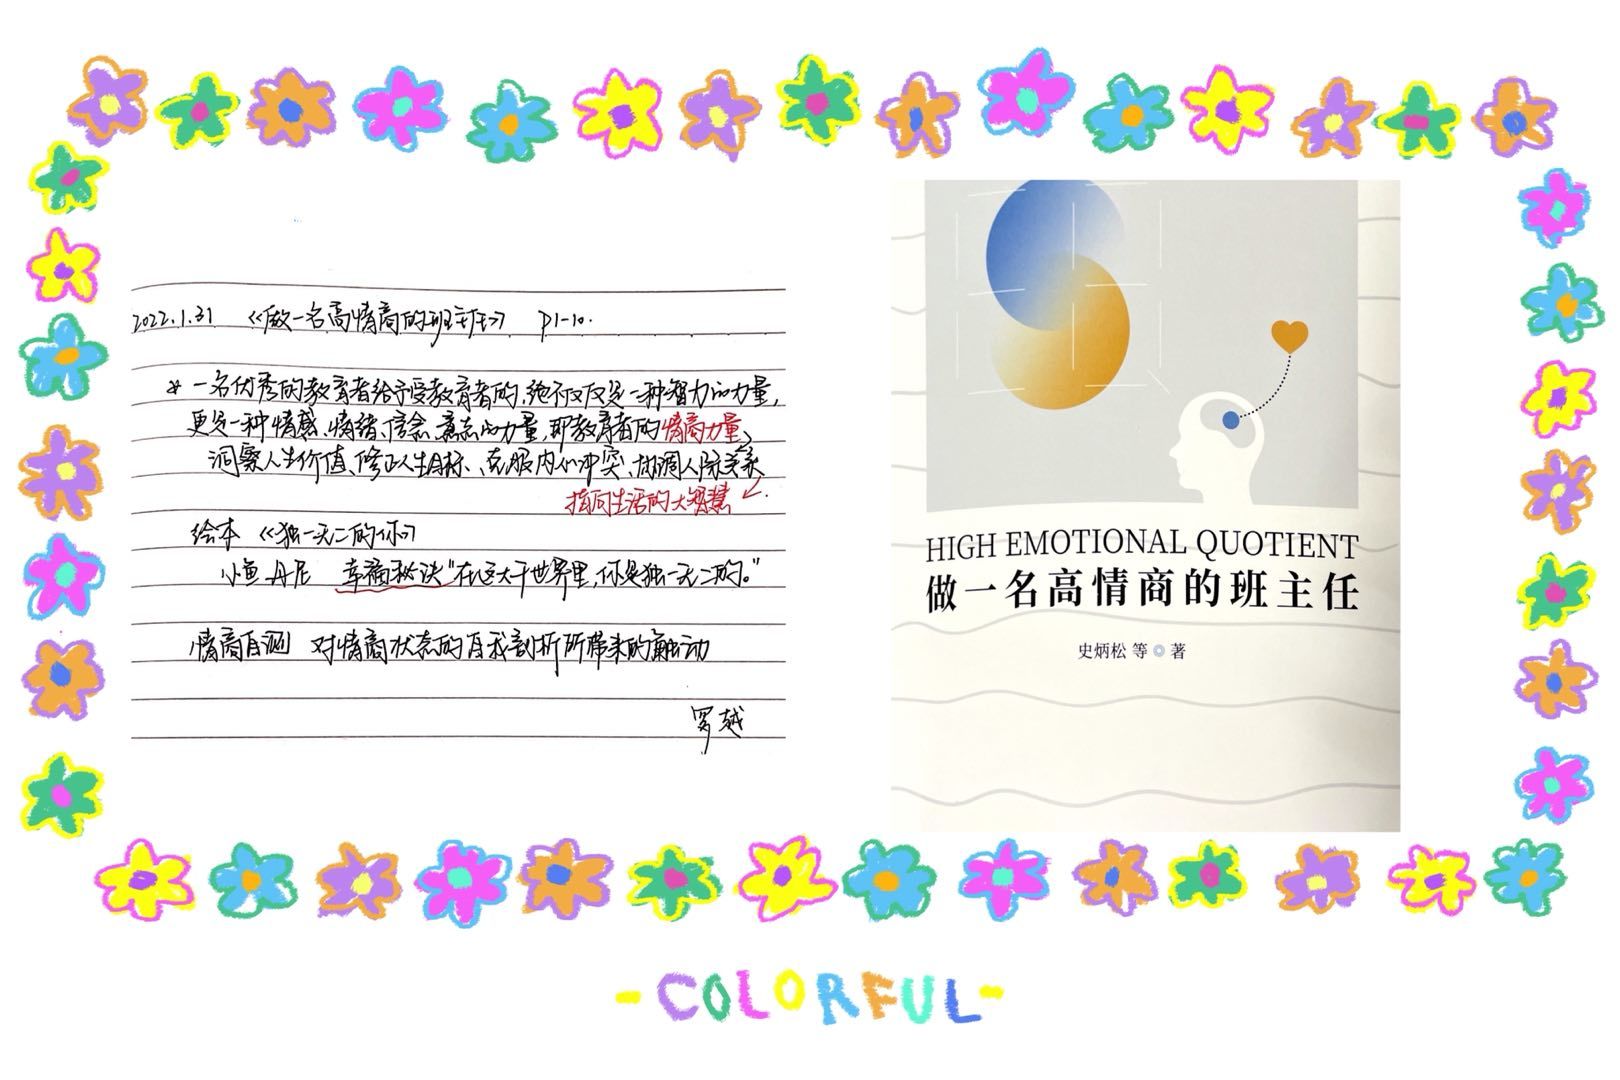 2022.1.31 《做一名高情商的班主任》 P1-10.
* 一名优秀的教育者给予受教育者的,绝不仅仅是一种智力的力量,
更是一种情感、情绪、信念、意志的力量,即教育者的情商力量
洞察人生价值、修正人生目标、克服内心冲突、协调人际关系
指向生活的大智慧
绘本 《独一无二的你》
小鱼丹尼 幸福秘诀“在这大千世界里,你是独一无二的。”
情商自测 对情商状态的自我剖析所带来的触动
罗越
HIGH EMOTIONAL QUOTIENT
做一名高情商的班主任
史炳松 等 著
-COLORFUL-